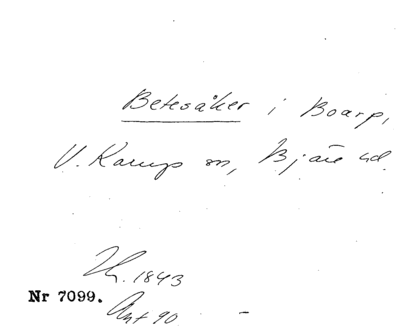 Betesåker i Boarp,
V. Karup sn, Bjäre hd.
Th. 1843
Nr 7099.
Ant 90 -